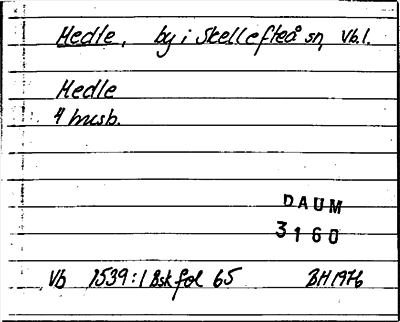 Medle, by i Skellefteå sn, Vb.l.
Medle
4 husb.
DAUM
3160
Vb 1539:1 Bsk fol 65 BH 1976